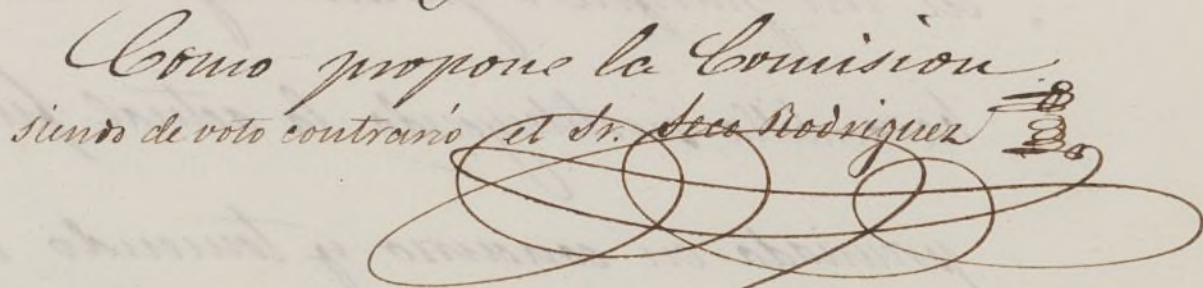 Como propone la Comision
siendo de voto contrario el Sr. Seco Rodriguez